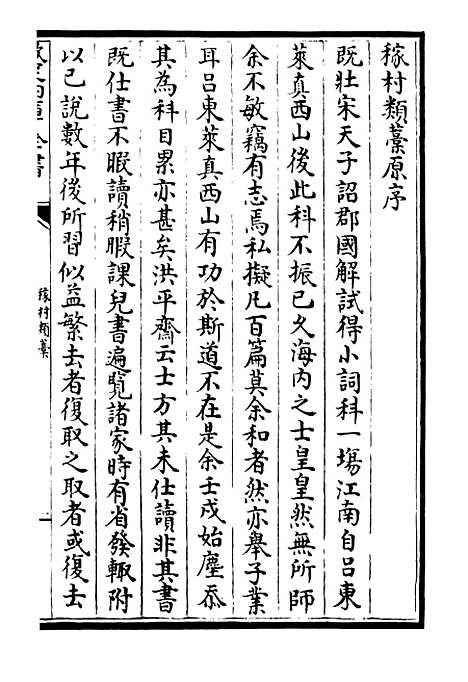 稼村類藁原序
既壯宋天子詔郡國解試得小詞科一塲江南自吕東
萊真西山後此科不振已乆海内之士皇皇然無所師
余不敏竊有志焉私擬凡百篇莫余和者然亦舉子業
耳吕東萊真西山有功於斯道不在是余壬戌始塵忝
其為科目累亦甚矣洪平齋云士方其未仕讀非其書
既仕書不暇讀稍暇課兒書遍覧諸家時有省發輙附
以已說數年後所習似益繁去者復取之取者或復去
稼村類藁